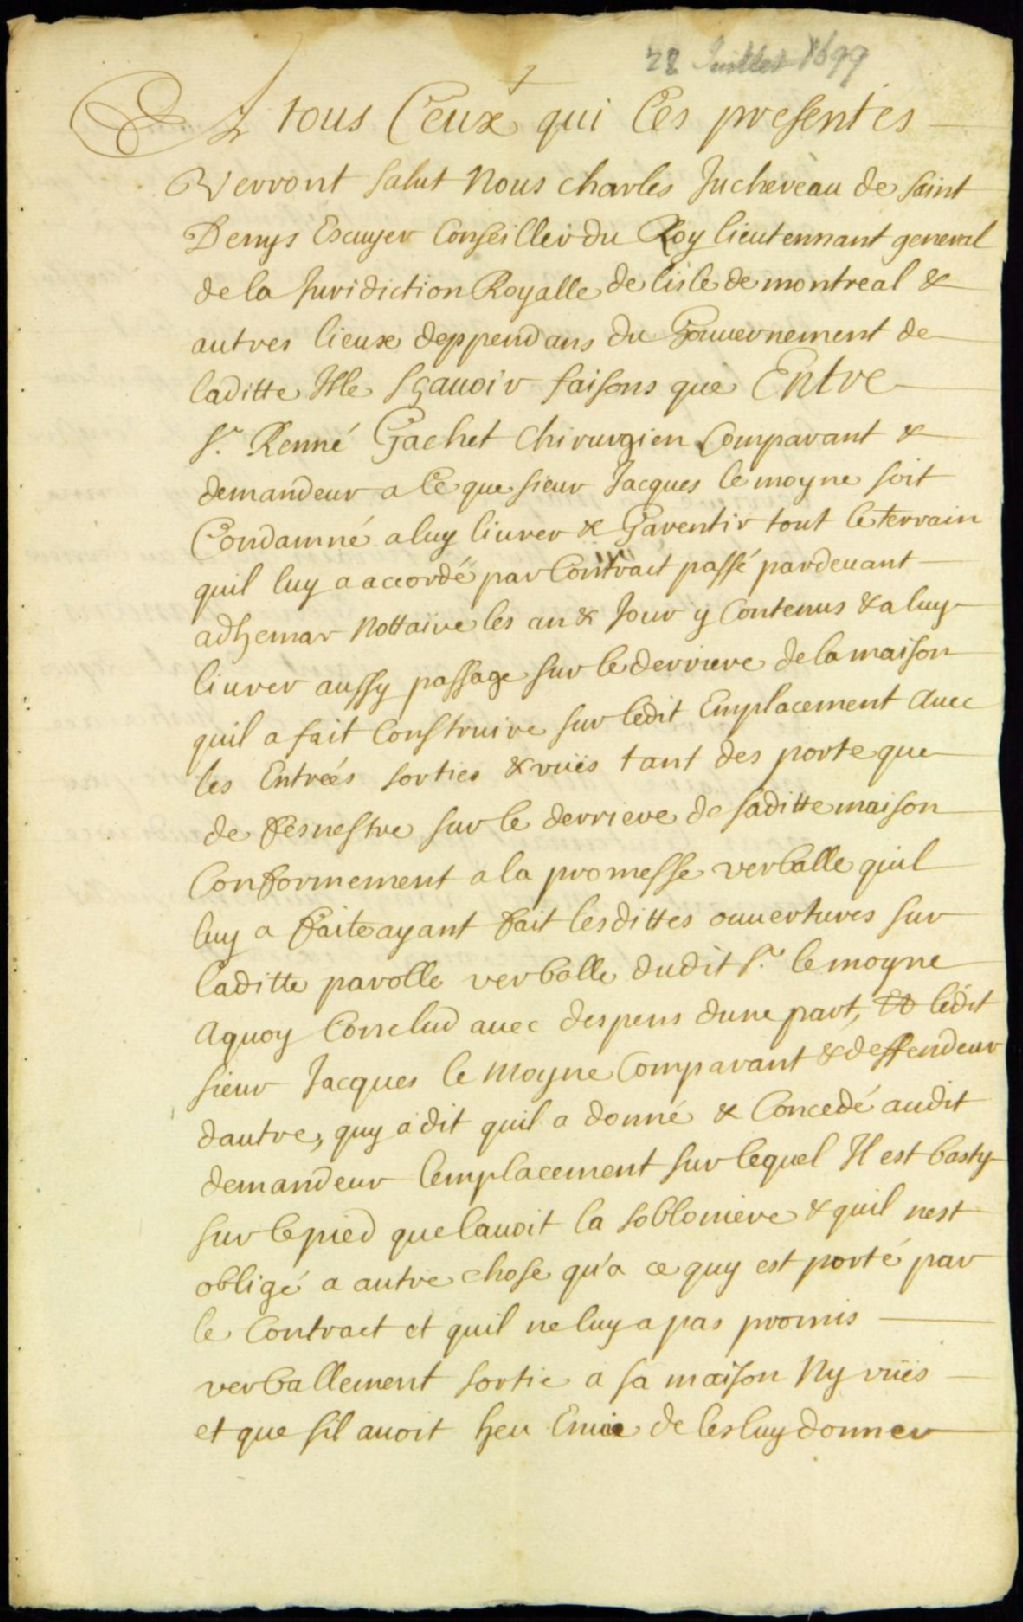 28 Juillet 1699
A tous Ceux qui Ces presentes
Verront salut Nous charles Juchereau de saint
Denys Escuyer Conseiller du Roy lieutennant general
de la Juridiction Royalle de lisle de montreal &
autres lieux deppendans du Gouuernement de
laditte Isle Sçauoir faisons que Entre
Sr. Renné Gachet Chirurgien Comparant &
demandeur a Ce que sieur Jacques le moyne soit
Condamné a luy liurer & Garentir tout le terrain
quil luy a accordé par Contrait passé pardeuant
adhemar Nottaire les an & Jour y Contenus & a luy
liurer aussy passage sur le derriere de la maison
quil a fait Construire sur ledit Emplacement auec
les Entreés sorties & vuës tant des porte que
de fesnestre sur le derriere de saditte maison
Conformement a la promesse verballe quil
luy a faite ayant fait lesdittes ouuertures sur
laditte parolle verballe dudit Sr. le moyne
aquoy Conclud auec despens dune part, Et ledit
sieur Jacques le Moyne Comparant & deffendeur
dautre, quy a dit quil a donné & Concedé audit
demandeur lemplacement sur lequel Il est basty
sur le pied que lauoit la sobloniere & quil nest
obligé a autre chose qu'a ce quy est porté par
le Contract et quil ne luy a pas promis
verballement sortie a sa maison Ny vuës
et que sil auoit heu Enuie de les luy donner